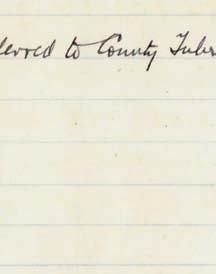 ferred to County Tuber